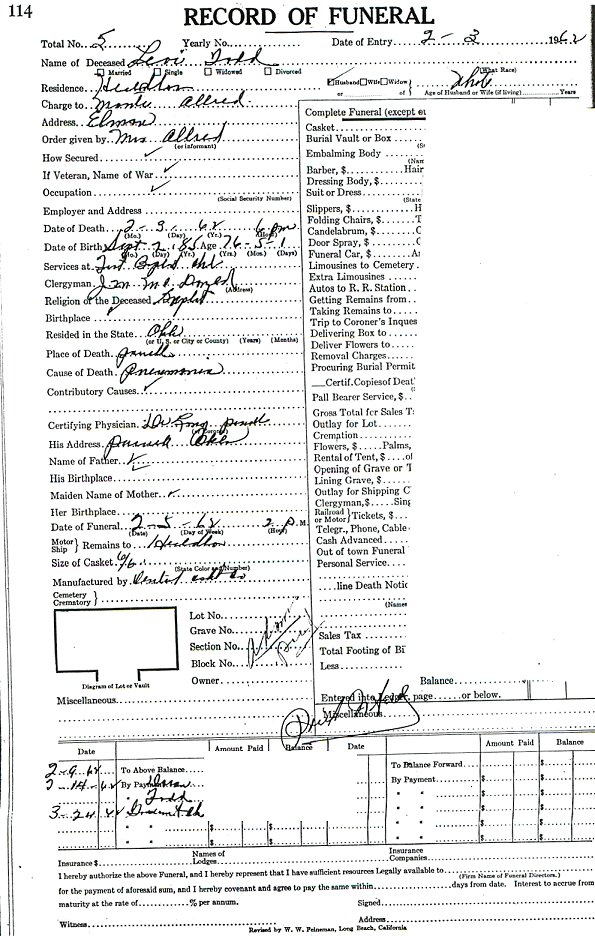 114
RECORD OF FUNERAL
Total No. 5 Yearly No. Date of Entry 2 - 3 1962
Name of Deceased Levi Todd
Married Single Widowed Divorced
Husband Wife Widow or of (What Race)
Residence
Age of Husband or Wife (if living) Years
Charge to Allred
Address
Order given by Mrs Allred
(or informant)
How Secured
If Veteran, Name of War
Occupation
(Social Security Number)
Employer and Address
Date of Death 2 - 3 - 62 6 pm
(Mo.) (Day) (Yr.) (Hour)
Date of Birth Sept 2 Age 76 - 5 - 1
(Mo.) (Day) (Yr.) (Yrs.) (Mos.) (Days)
Services at
Clergyman
(Address)
Religion of the Deceased Baptist
Birthplace
Resided in the State Okla
(or U. S. or City or County) (Years) (Months)
Place of Death
Cause of Death Pneumonia
Contributory Causes
Certifying Physician Dr Long
(or Coroner)
His Address Okla
Name of Father
His Birthplace
Maiden Name of Mother
Her Birthplace
Date of Funeral 2 - 5 - 62 2 P. M.
(Date) (Day of Week) (Hour)
Motor Ship } Remains to
Size of Casket 6/6
(State Color and Number)
Manufactured by
Cemetery Crematory }
Lot No.
Grave No.
Section No.
Block No.
Owner
Diagram of Lot or Vault
Miscellaneous
Complete Funeral (except
Casket
Burial Vault or Box
Embalming Body
Barber, $ Hair
Dressing Body, $
Suit or Dress
(State
Slippers, $ H
Folding Chairs, $ T
Candelabrum, $ C
Door Spray, $ C
Funeral Car, $
Limousines to Cemetery
Extra Limousines
Autos to R. R. Station
Getting Remains from
Taking Remains to
Trip to Coroner's Inques
Delivering Box to
Deliver Flowers to
Removal Charges
Procuring Burial Permit
Certif. Copies of Deat
Pall Bearer Service, $
Gross Total for Sales T
Outlay for Lot
Cremation
Flowers, $ Palms,
Rental of Tent, $ of
Opening of Grave or
Lining Grave, $
Outlay for Shipping C
Clergyman, $ Sing
Railroad or Motor } Tickets, $
Telegr., Phone, Cable
Cash Advanced
Out of town Funeral
Personal Service
line Death Notic
(Names
Sales Tax
Total Footing of Bi
Less
Balance
Entered into Ledger, page or below.
Miscellaneous
Date Amount Paid Balance Date Amount Paid Balance
2 - 9 - 62 To Above Balance To Balance Forward $
2 - 14 - 62 By Payment By Payment $
Todd " " $
3 - 24 " " $
" " $ $ " " $
" " $ $ " " $
Insurance $ Names of Lodges Insurance Companies
I hereby authorize the above Funeral, and I hereby represent that I have sufficient resources Legally available to
(Firm Name of Funeral Directors.)
for the payment of aforesaid sum, and I hereby covenant and agree to pay the same within days from date. Interest to accrue from
maturity at the rate of % per annum. Signed
Witness Address
Revised by W. W. Feineman, Long Beach, California